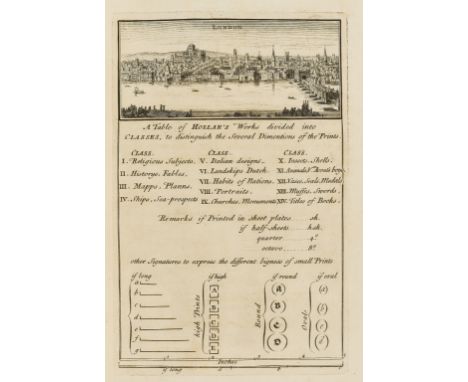 LONDON
A Table of HOLLAR'S Works divided into
CLASSES, to distinguish the Several Dimentions of the Prints.
CLASS. CLASS. CLASS.
I. Religious Subjects. V. Italian designs. X. Insects. Shells.
II. Historys. Fables. VI. Landskips Dutch. XI. Animals
III. Mapps. Planns. VII. Habits of Nations. XII. Vases. Seals. Medals
IV. Ships. Sea-prospects VIII. Portraits. XIII. Muffes. Swords.
IX. Churches. Monuments XIV. Titles of Books.
Remarks if Printed in Sheet plates ..... sh.
if half-sheets ..... h.sh.
quarter ..... 4.º
octavo ..... 8.º
other Signatures to express the different bigness of small Prints
if long if high if round if oval
a b c d e f g
high Prints
Round
a
Oval
(a) (b) (c) (d)
Inches
if long